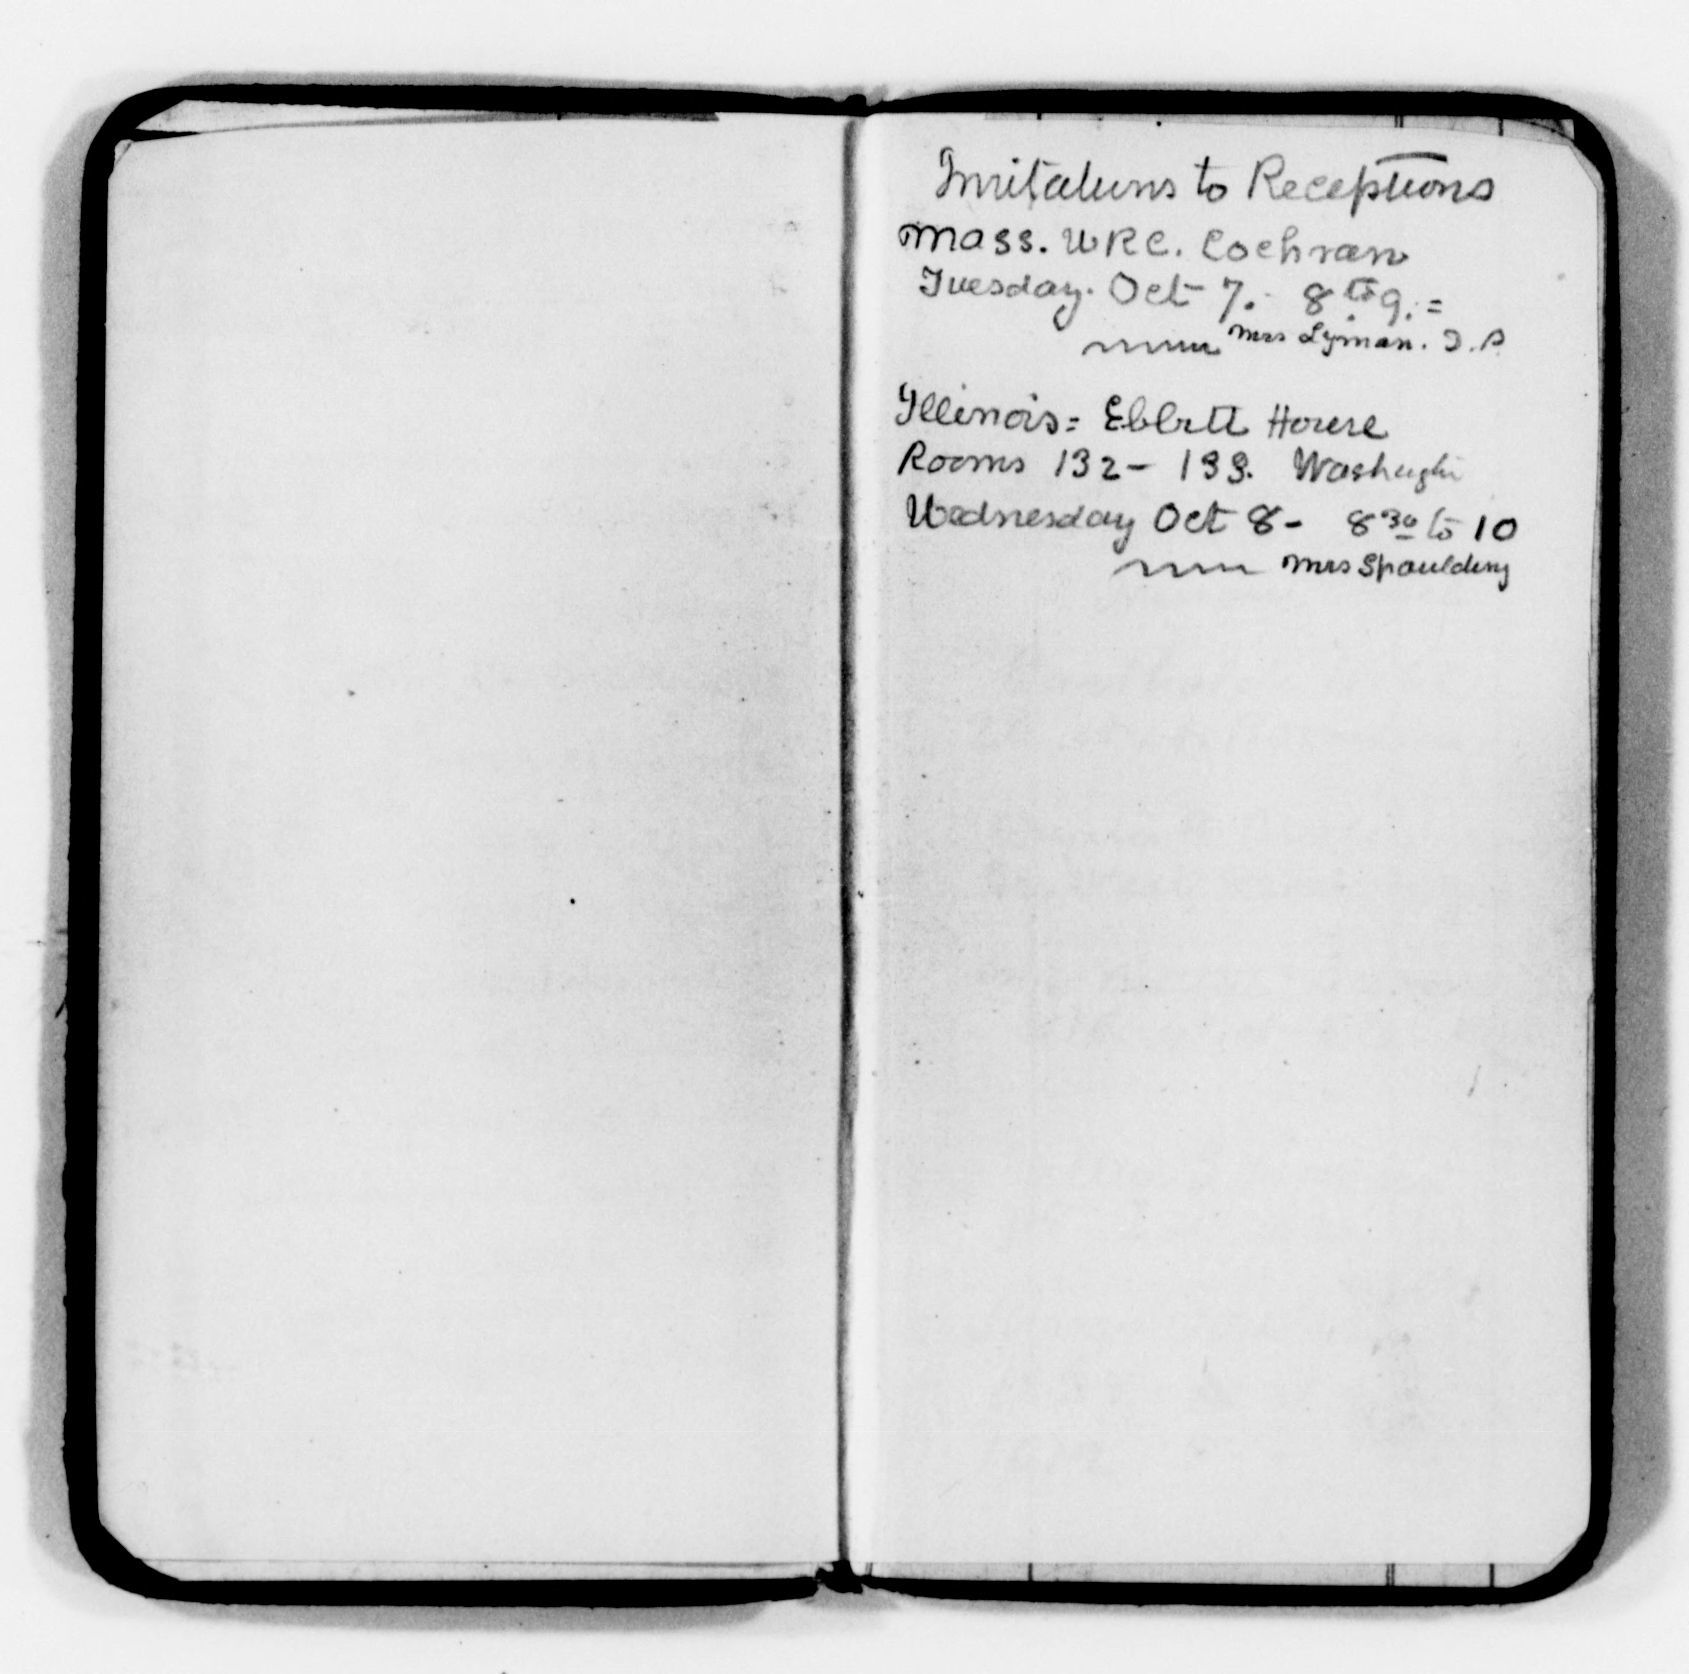 Invitations to Receptions
Mass. W R C. Cochran
Tuesday. Oct 7. 8 to 9. =
Mrs Lyman. D. P
Illinois = Ebbitt House
Rooms 132 - 133. Washington
Wednesday Oct 8 - 8 30 to 10
Mrs Spaulding